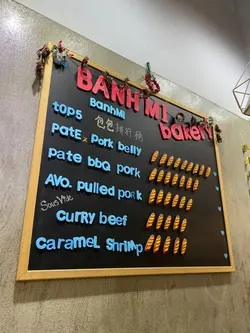 BANH MI
bakery
top5 BanhMi
包包排行榜
Pate x Pork belly
Pate BBQ pork
AVO. pulled pork
Sous Vide
Curry beef
Caramel Shrimp